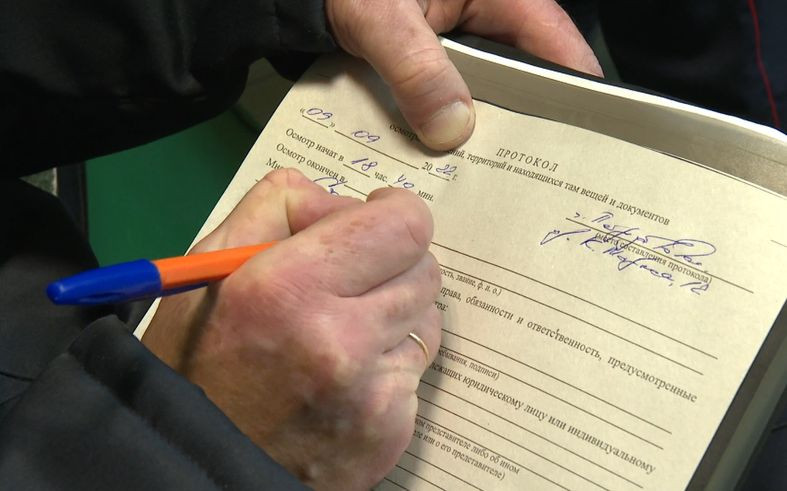 ПРОТОКОЛ
осмотра ний, территорий и находящихся там вещей и документов
« 09 » 09 20 22 г.
Осмотр начат в 18 час. 40 мин.
Осмотр окончен в
(место составления протокола)
К. Маркса, 12
ность, звание, ф. и. о.)
рава, обязанности и ответственность, предусмотренные
живания, подписи)
лежащих юридическому лицу или индивидуальному
ом представителе либо об ином
еле или о его представителе)